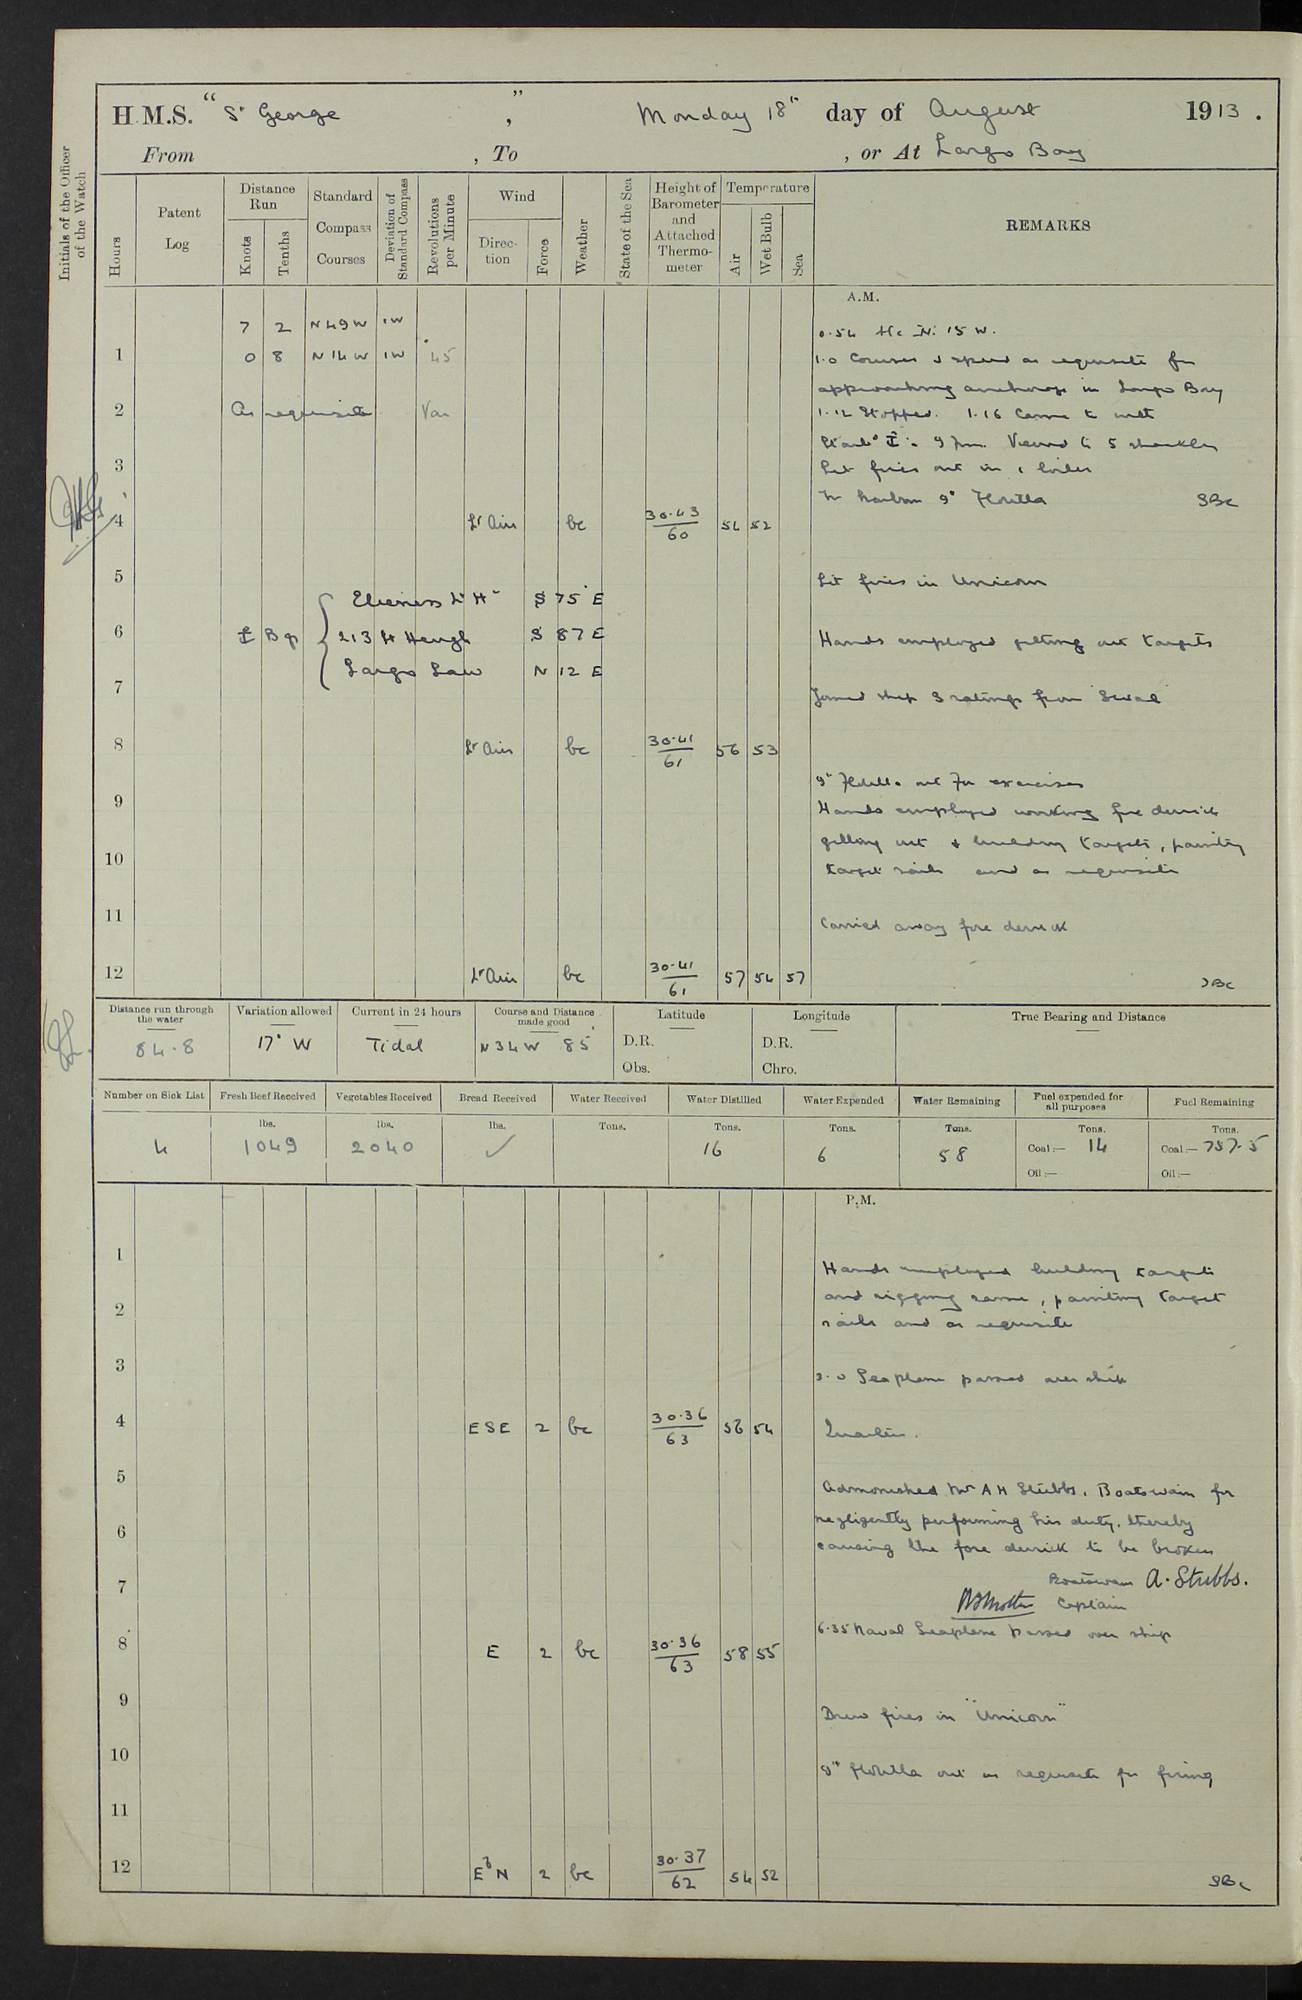 H.M.S. "St George", Monday 18th day of August 1913.
From , To , or At Largo Bay
Initials of the Officer of the Watch
Hours
Patent Log
Distance Run
Knots
Tenths
Standard Compass Courses
Deviation of Standard Compass
Revolutions per Minute
Wind
Direction
Force
Weather
State of the Sea
Height of Barometer and Attached Thermometer
Temperature
Air
Wet Bulb
Sea
REMARKS
A.M.
7 2 N49W 1W
0.54 A/c N. 15 W.
1 0 8 N14W 1W 45
1.0 Courses & speed as requisite for
approaching anchorage in Largo Bay
2 As requisite Var
1.12 Stopped. 1.16 Came to with
9 fm. Veered to 5 shackles
3
Let fires out in 1 boiler
In harbour 9th Flotilla
4 Lt Airs bc 30.43 60 54 52
5
Lit fires in Unicorn
Elieness Lt Ho S 75 E
6 Bgs 213 ft Heugh S 87 E
Hands employed getting out targets
Largo Law N 12 E
7
Joined ship 3 ratings from
8 Lt Airs bc 30.41 61 56 53
9th Flotilla out for exercises
9
Hands employed working fore derrick
getting out & building targets, painting
10
target sails and as requisite
11
Carried away fore derrick
12 Lt Airs bc 30.41 61 57 54 57
Distance run through the water
84.8
Variation allowed
17° W
Current in 24 hours
Tidal
Course and Distance made good
N34W 85
Latitude
D.R.
Obs.
Longitude
D.R.
Chro.
True Bearing and Distance
Number on Sick List
4
Fresh Beef Received
lbs.
1049
Vegetables Received
lbs.
2040
Bread Received
lbs.
✓
Water Received
Tons.
Water Distilled
Tons.
16
Water Expended
Tons.
6
Water Remaining
Tons.
58
Fuel expended for all purposes
Tons.
Coal:— 14
Oil:—
Fuel Remaining
Tons.
Coal:— 757.5
Oil:—
P.M.
1
Hands employed building targets
2
and rigging same, painting target
sails and as requisite
3
3.0 Seaplane passed over ship
4 ESE 2 bc 30.36 63 56 54
Quarters.
5
Admonished Mr A H Stubbs, Boatswain for
6
negligently performing his duty, thereby
causing the fore derrick to be broken
7
Boatswain A. Stubbs.
Captain
6.35 Naval Seaplane passed over ship
8 E 2 bc 30.36 63 58 55
9
Drew fires in "Unicorn"
10
Flotilla out as requisite for firing
11
12 EbN 2 bc 30.37 62 54 52